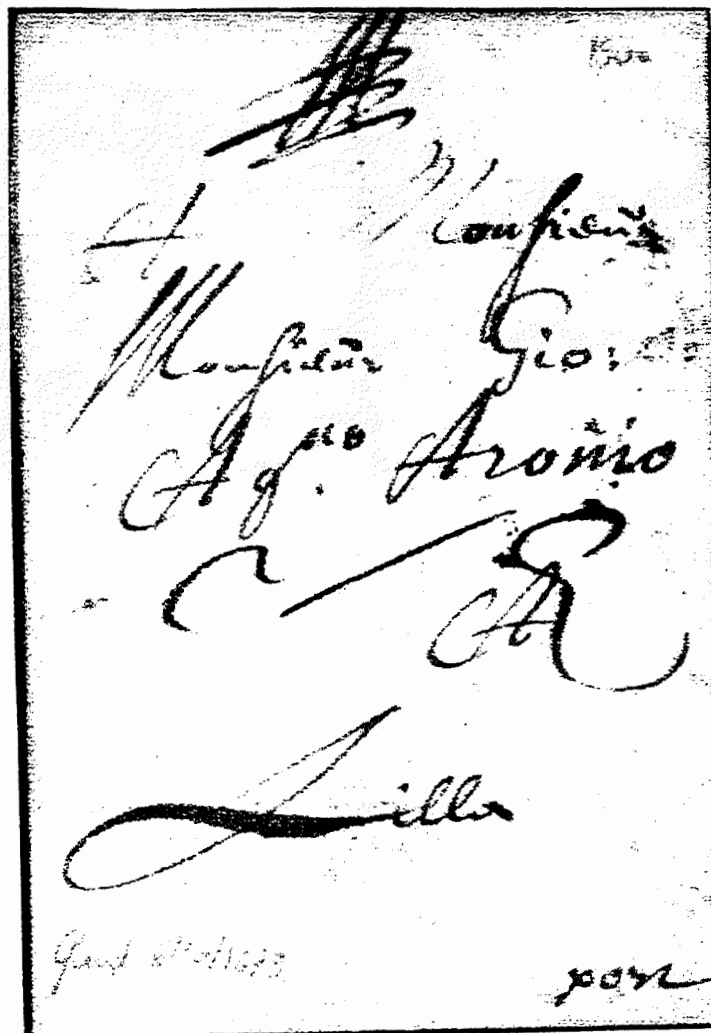 A Monsieur
Monsieur Gio:
Ag.no Aroñio
A
Lilla
port